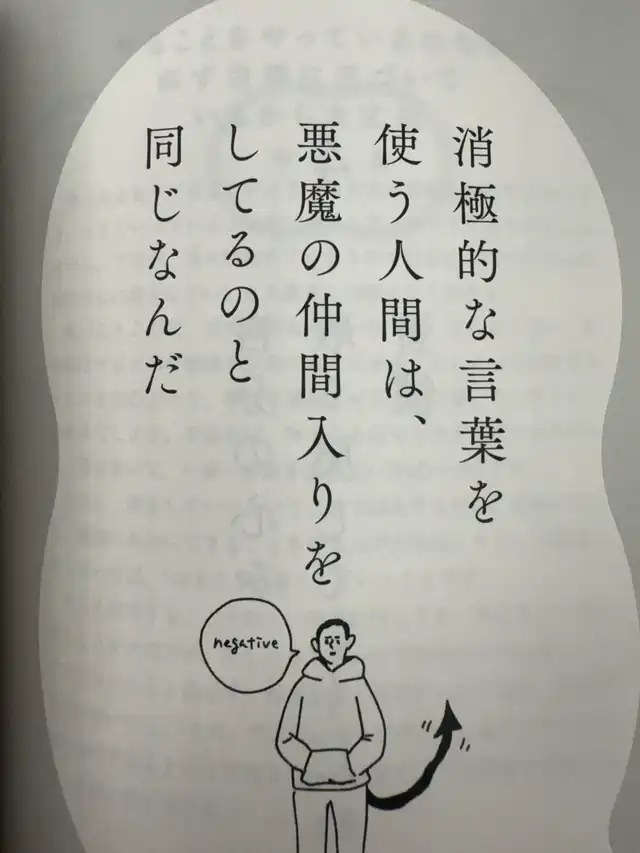 消極的な言葉を
使う人間は、
悪魔の仲間入りを
してるのと
同じなんだ
negative